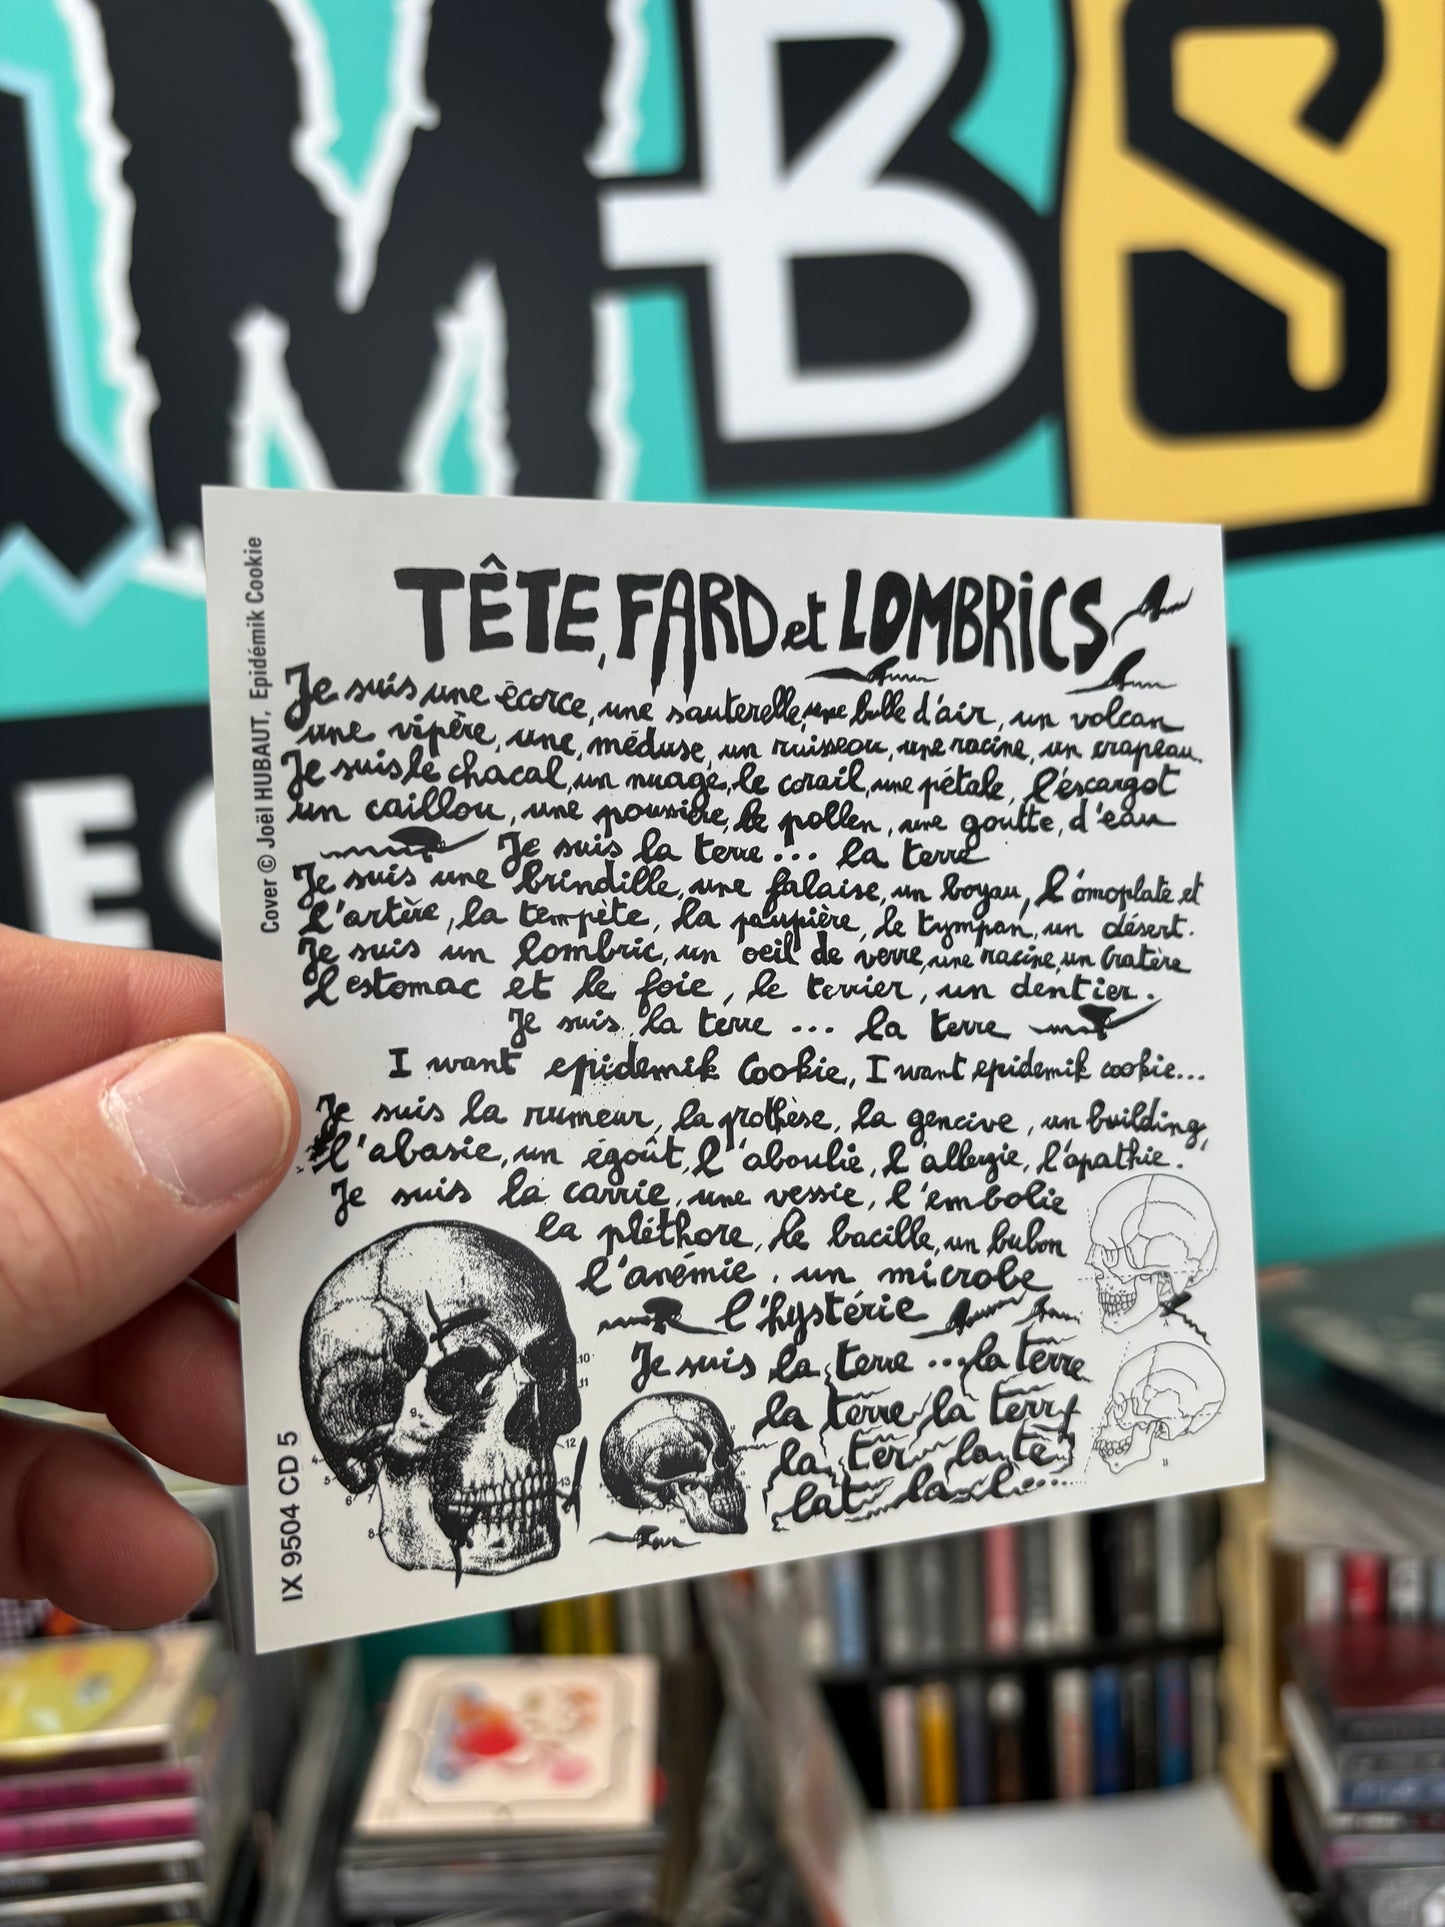 MBS
E
Cover © Joël HUBAUT, Epidémik Cookie
IX 9504 CD 5
TÊTE, FARD et LOMBRiCS
Je suis une écorce, une sauterelle, une bulle d'air, un volcan
une vipère, une, méduse, un ruisseau, une racine, un crapeau.
Je suis le chacal, un nuage, le corail, une pétale, l'escargot
un caillou, une poussière, le pollen, une goutte, d'eau
Je suis la terre... la terre
Je suis une brindille, une falaise, un boyau, l'omoplate et
l'artère, la tempète, la paupière, le tympan, un désert.
Je suis un lombric, un oeil de verre, une racine, un cratère
l'estomac et le foie, le terrier, un dentier.
Je suis la terre ... la terre
I want epidemik Cookie, I want epidemik cookie...
Je suis la rumeur, la prothèse, la gencive, un building,
l'abasie, un égoût, l'aboulie, l'allergie, l'apathie.
Je suis la carrie, une vessie, l'embolie
la pléthore, le bacille, un bubon
l'anémie, un microbe
l'hystérie
Je suis la terre ... la terre
la terre la terr
la ter la te
lat la l....